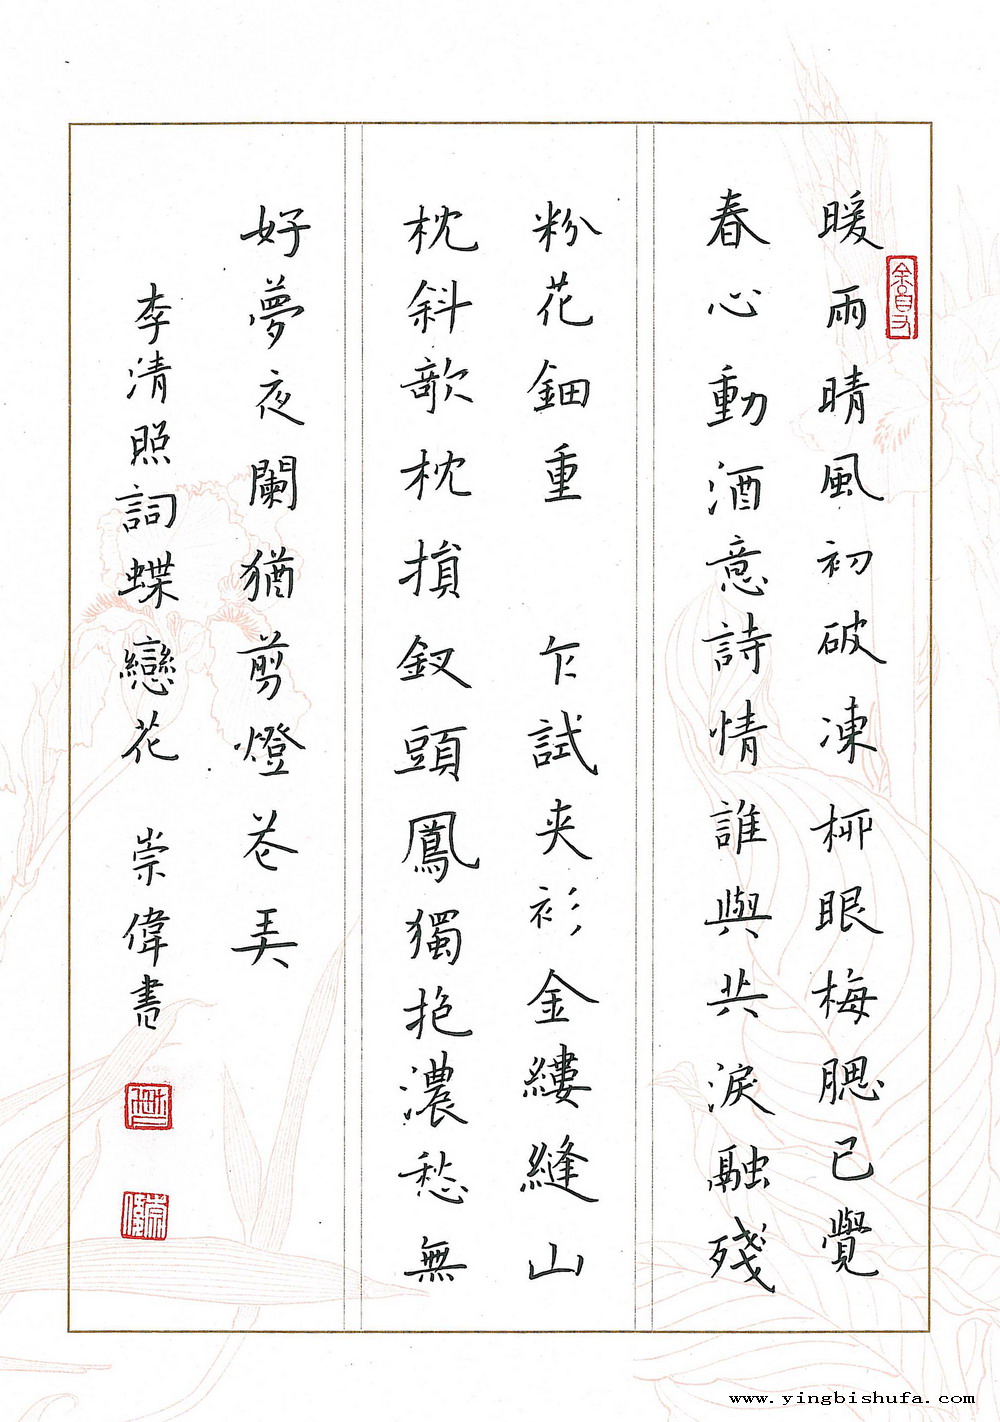 暖雨晴風初破凍柳眼梅腮已覺
春心動酒意詩情誰與共淚融殘
粉花鈿重　乍試夾衫金縷縫山
枕斜欹枕損釵頭鳳獨抱濃愁無
好夢夜闌猶剪燈花弄
李清照詞蝶戀花　崇偉書
www.yingbishufa.com